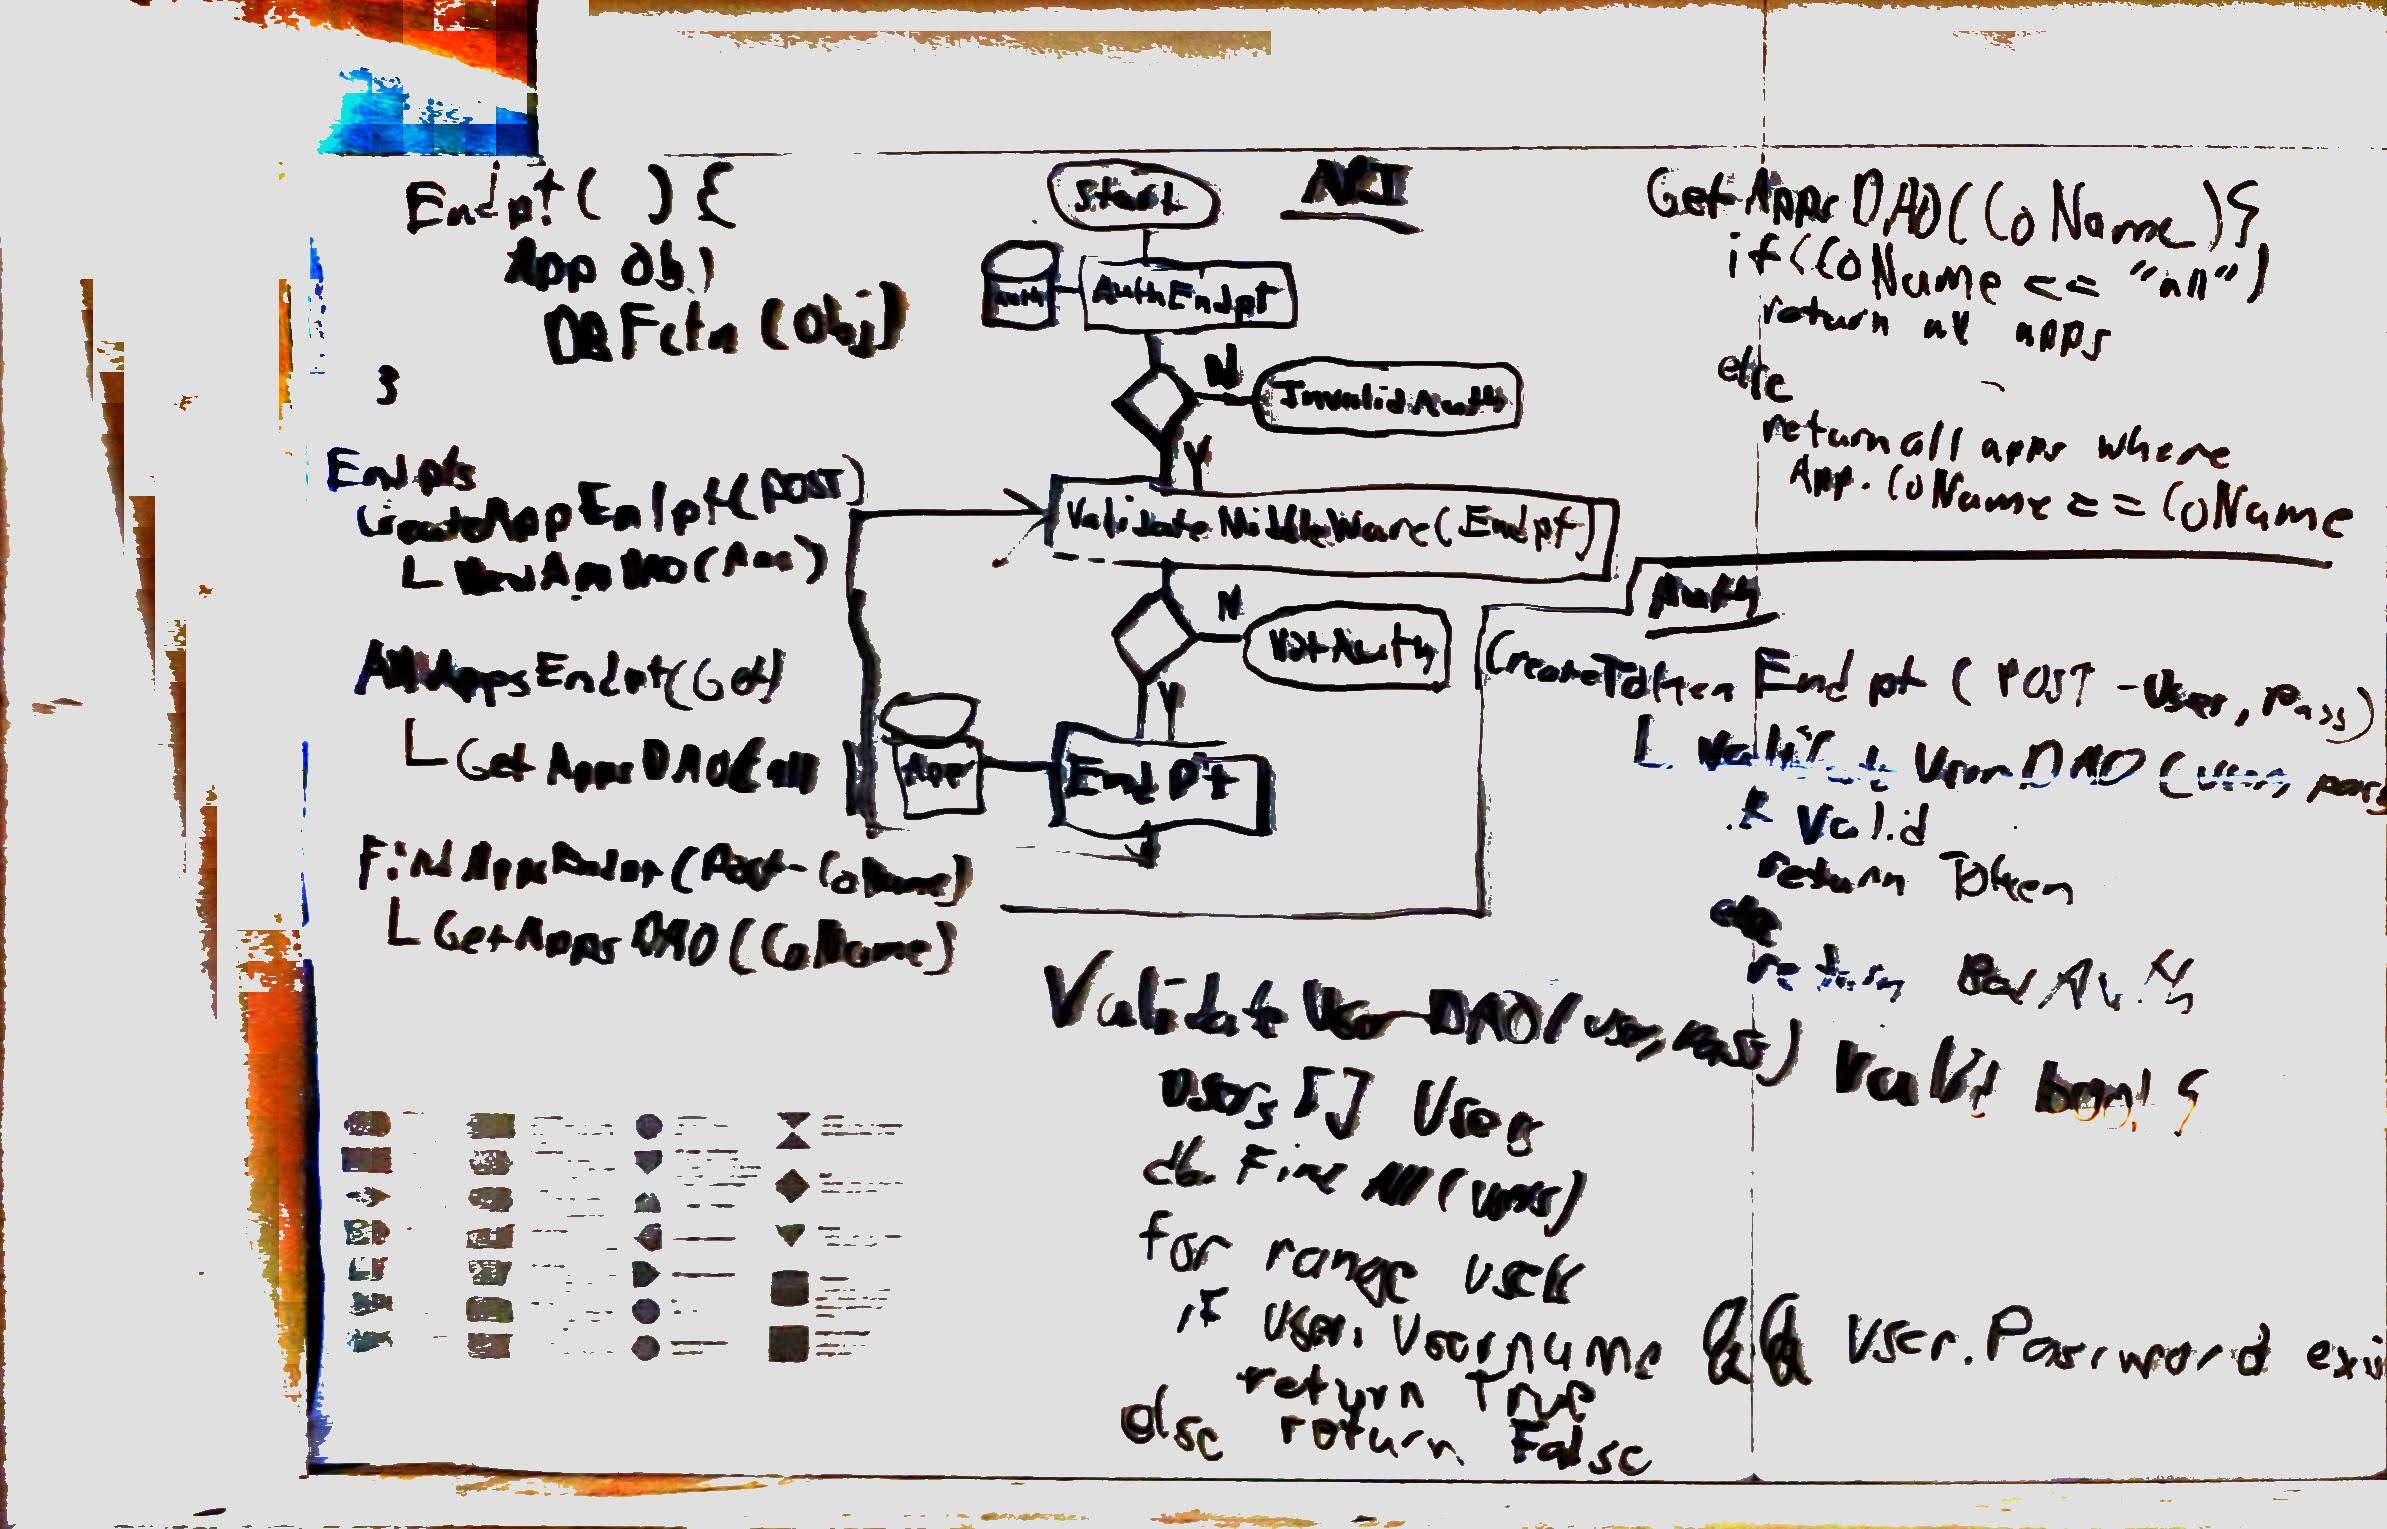 Endpt( ) {
App Obj
DBFctn (Obj)
}
Endpts
CreateAppEndpt(POST)
NewAppDAO(App)
AllAppsEndpt(Get)
GetAppsDAO(all
FindAppsEndpt(Post-CoName)
GetAppsDAO(CoName)
API
Start
Auth
AuthEndpt
N
InvalidAuth
Y
ValidateMiddleWare(Endpt)
N
NotAuth
Y
App
EndPt
GetAppsDAO(CoName){
if(CoName == "all")
return all apps
else
return all apps where
App.CoName == CoName
Auth
CreateTokenEndpt (POST - User, Pass)
ValidateUserDAO (user, pass
if Valid
return Token
else
return BadAuth
ValidateUserDAO(user, pass) valid bool {
users [] User
db.FindAll(users)
for range users
if user.Username && user.Password exi
return True
else return False